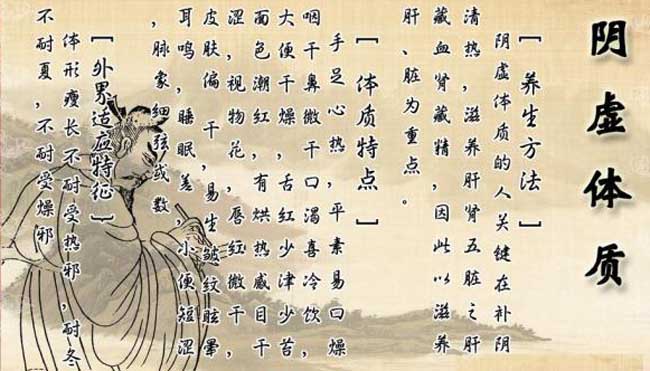 阴虚体质
[养生方法]
阴虚体质的人关键在补阴
清热,滋养肝肾五脏之肝
藏血肾藏精,因此以滋养
肝、脏为重点。
[体质特点]
手足心热,平素易口燥
咽干鼻微干口渴喜冷饮,
大便干燥,舌红少津少苔,
面色潮红,有烘热感目干
涩,视物花,唇红微干,
皮肤偏干,易生皱纹眩晕
耳鸣,睡眠差,小便短涩
,脉象细弦或数,
[外界适应特征]
体形瘦长不耐受热邪,耐冬
不耐夏,不耐受燥邪